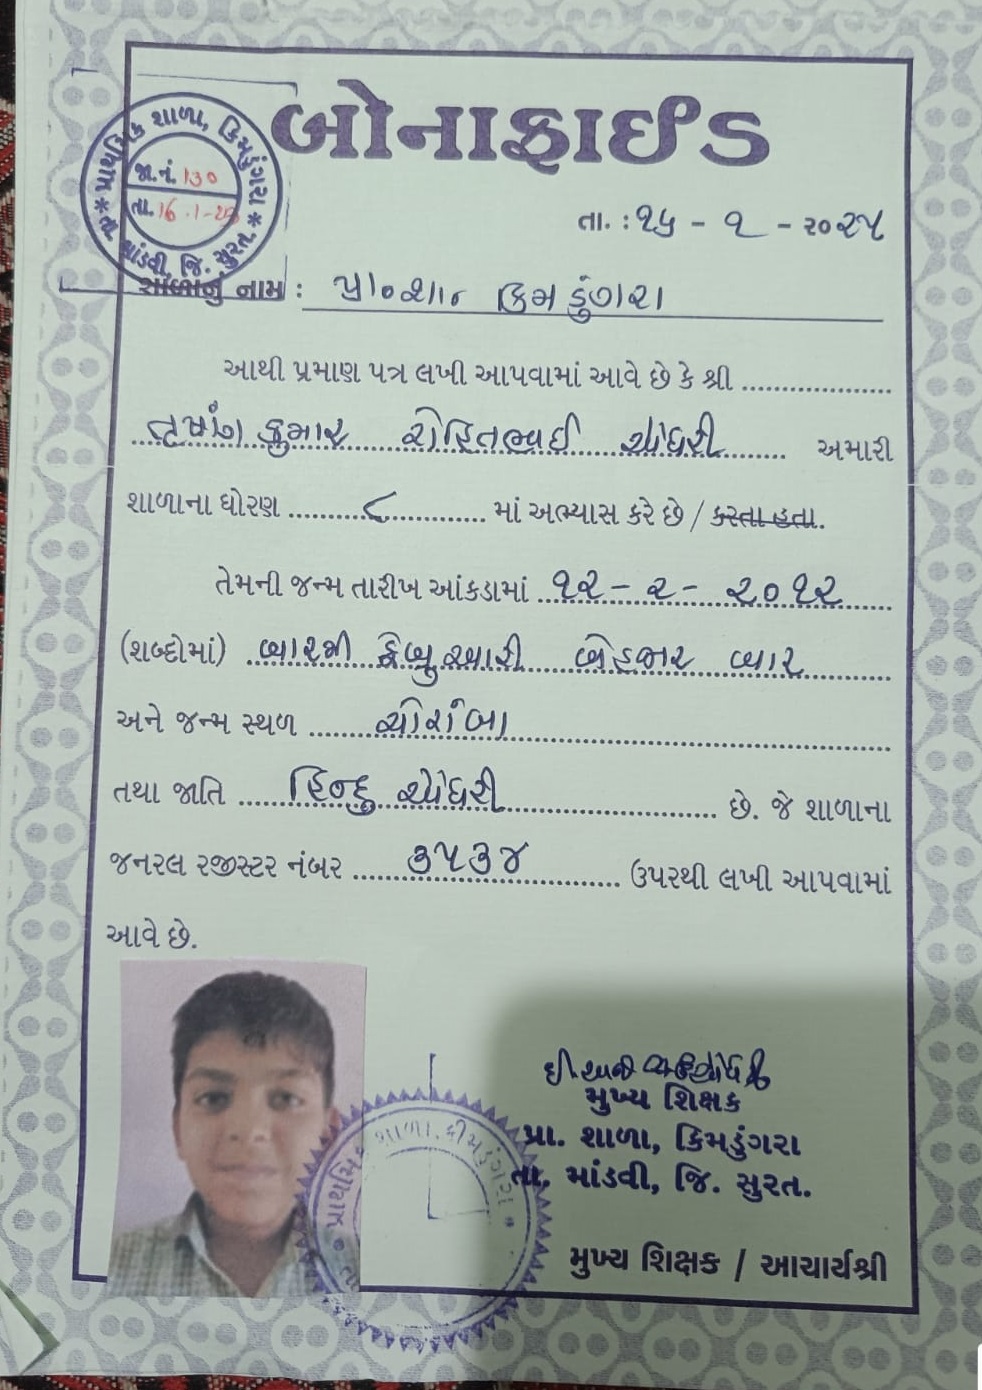 બોનાફાઈડ
પ્રાથમિક શાળા, કિમડુંગરા * તા. માંડવી, જિ. સુરત. *
જા.નં. 130
તા. 16-1-25
તા. : ૧૫ - ૧ - ૨૦૨૫
શાળાનું નામ : પ્રા૦શા૦ કિમડુંગરા
આથી પ્રમાણ પત્ર લખી આપવામાં આવે છે કે શ્રી
કુમાર રોહિતભાઈ ચૌધરી અમારી
શાળાના ધોરણ ૮ માં અભ્યાસ કરે છે / કરતા હતા.
તેમની જન્મ તારીખ આંકડામાં ૧૨ - ૨ - ૨૦૧૨
(શબ્દોમાં) બારમી ફેબ્રુઆરી બેહજાર બાર
અને જન્મ સ્થળ ચોરાંબા
તથા જાતિ હિન્દુ ચૌધરી છે. જે શાળાના
જનરલ રજીસ્ટર નંબર ૩૫૩૪ ઉપરથી લખી આપવામાં
આવે છે.
મુખ્ય શિક્ષક
પ્રા. શાળા, કિમડુંગરા
તા. માંડવી, જિ. સુરત.
પ્રાથમિક શાળા, કીમડુંગરા
મુખ્ય શિક્ષક / આચાર્યશ્રી